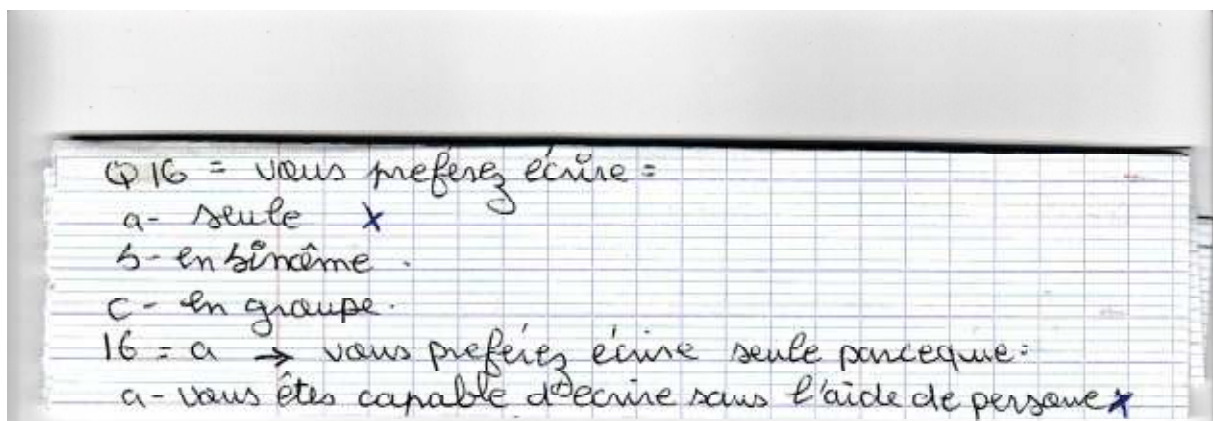 Q 16 = vous preferez écrire =
a- seule x
b- en binême.
c- en groupe.
16 = a → vous preférez écrire seule parceque:
a- vous êtes capable d'ecrire sans l'aide de persone x